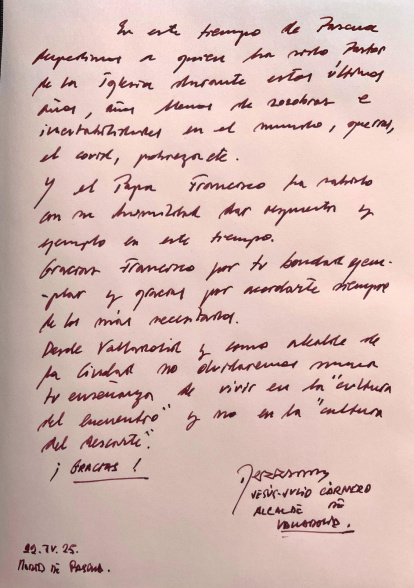 En este tiempo de Pascua
despedimos a quien ha sido Pastor
de la Iglesia durante estos últimos
años, años llenos de zozobras e
inestabilidades en el mundo, guerras,
el covid, pobreza etc.
Y el Papa Francisco ha sabido
con su humildad dar respuesta y
ejemplo en este tiempo.
Gracias Francisco por tu bondad ejem-
-plar y gracias por acordarte siempre
de los más necesitados.
Desde Valladolid y como alcalde de
la Ciudad no olvidaremos nunca
tu enseñanza de vivir en la "cultura
del encuentro" y no en la "cultura
del descarte".
¡GRACIAS!
JESÚS JULIO CARNERO
ALCALDE DE
VALLADOLID.
22.IV.25.
MARTES DE PASCUA.